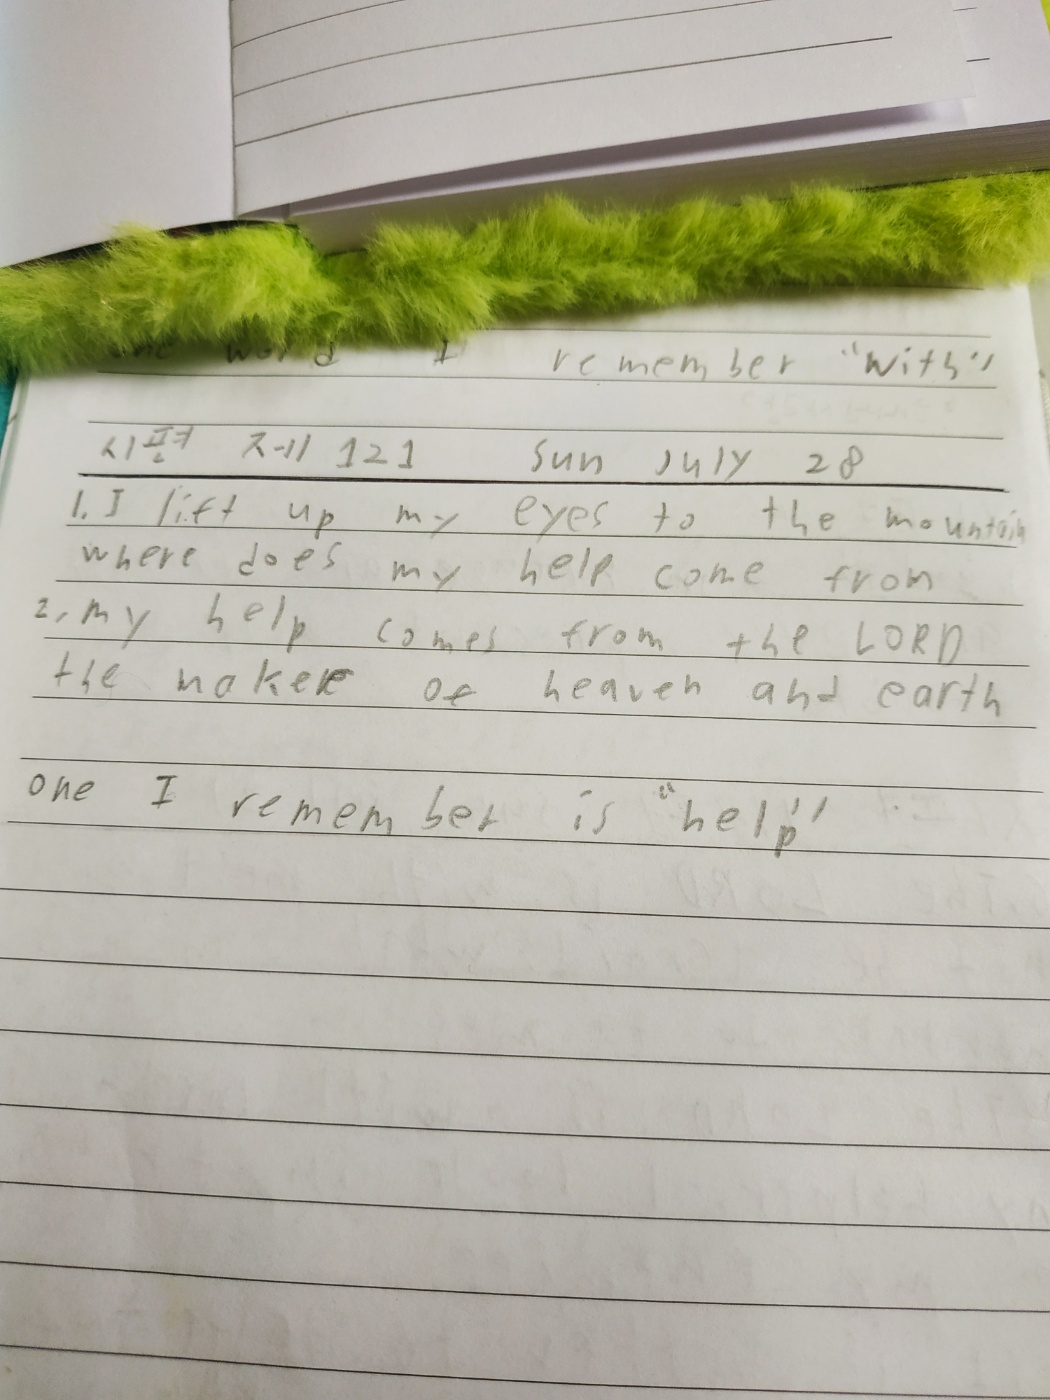 one word I remember "With"
시편 제 121 Sun July 28
1. I lift up my eyes to the mountain
where does my help come from
2. my help comes from the LORD
the maker of heaven and earth
one I remember is "help"